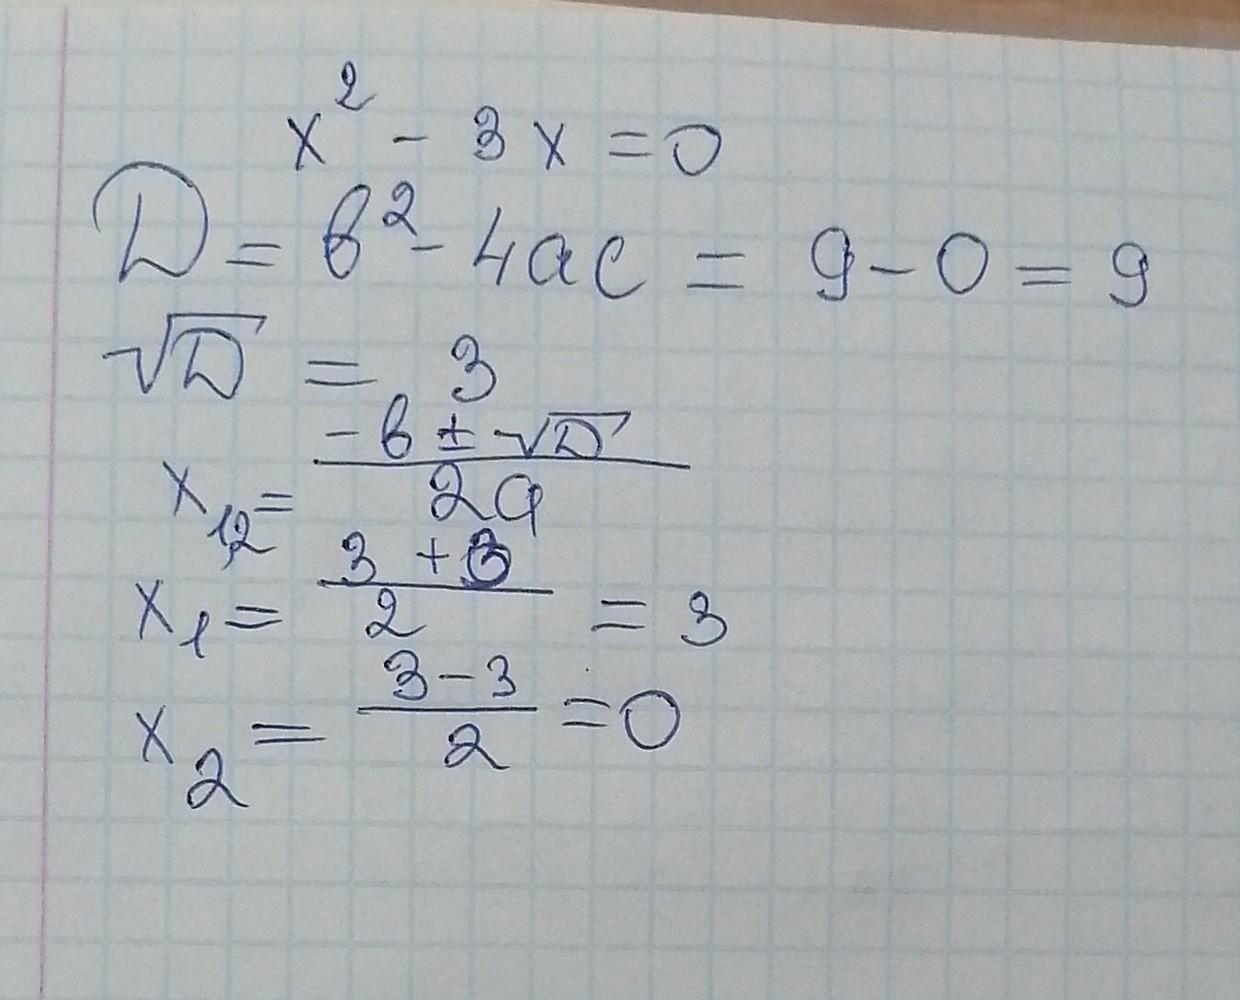 x² - 3x = 0
D = b² - 4ac = 9 - 0 = 9
√D = 3
x₁,₂ = (-b ± √D) / 2a
x₁ = (3 + 3) / 2 = 3
x₂ = (3 - 3) / 2 = 0